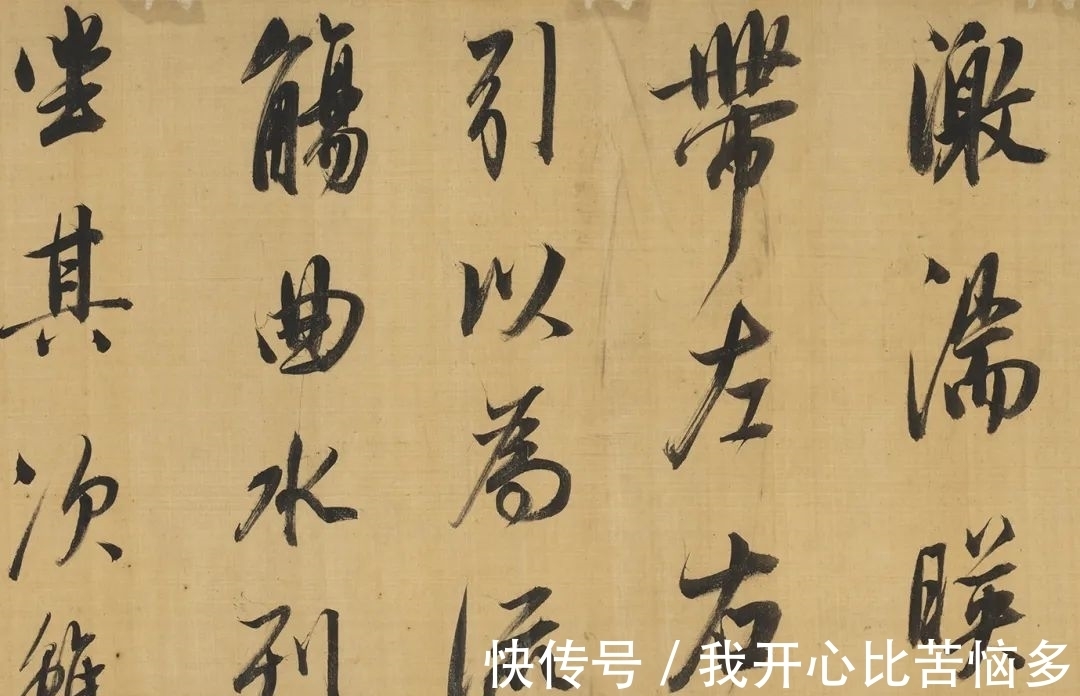 激湍暎
帶左右
引以為流
觴曲水列
坐其次雖
快传号 / 我开心比苦恼多